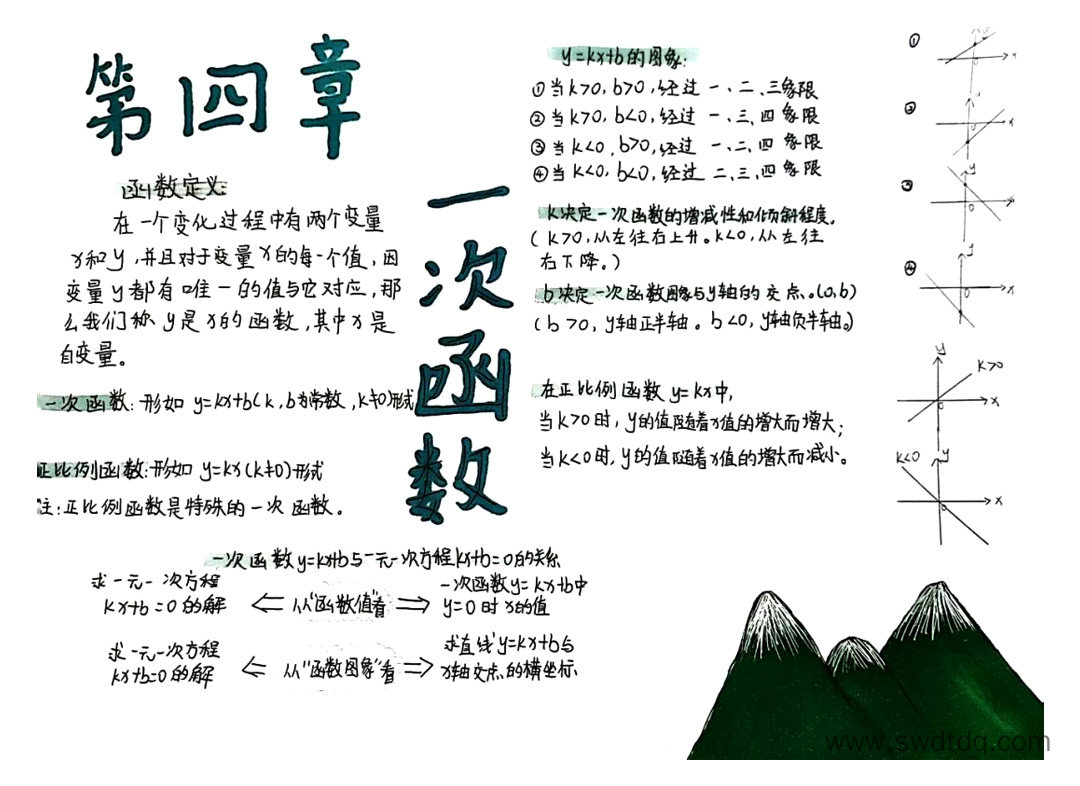 第四章
一次函数
函数定义:
在一个变化过程中有两个变量
x和y,并且对于变量x的每一个值,因
变量y都有唯一的值与它对应,那
么我们称y是x的函数,其中x是
自变量。
一次函数:形如 y=kx+b(k,b为常数,k≠0)形式
正比例函数:形如 y=kx(k≠0)形式
注:正比例函数是特殊的一次函数。
y=kx+b的图象:
①当k>0,b>0,经过 一、二、三象限
②当k>0,b<0,经过 一、三、四象限
③当k<0,b>0,经过 一、二、四象限
④当k<0,b<0,经过 二、三、四象限
k决定一次函数的增减性和倾斜程度。
(k>0,从左往右上升。k<0,从左往
右下降。)
b决定一次函数图象与y轴的交点。(0,b)
(b>0,y轴正半轴。b<0,y轴负半轴。)
在正比例函数 y=kx中,
当k>0时,y的值随着x值的增大而增大;
当k<0时,y的值随着x值的增大而减小。
①
x
0
②
x
0
③
y
x
0
④
y
x
0
y
k>0
x
0
k<0
y
x
0
一次函数y=kx+b与一元一次方程kx+b=0的关系
求一元一次方程
kx+b=0的解
从"函数值"看
一次函数y=kx+b中
y=0时x的值
求一元一次方程
kx+b=0的解
从"函数图象"看
求直线y=kx+b与
x轴交点的横坐标
www.swdtdq.com